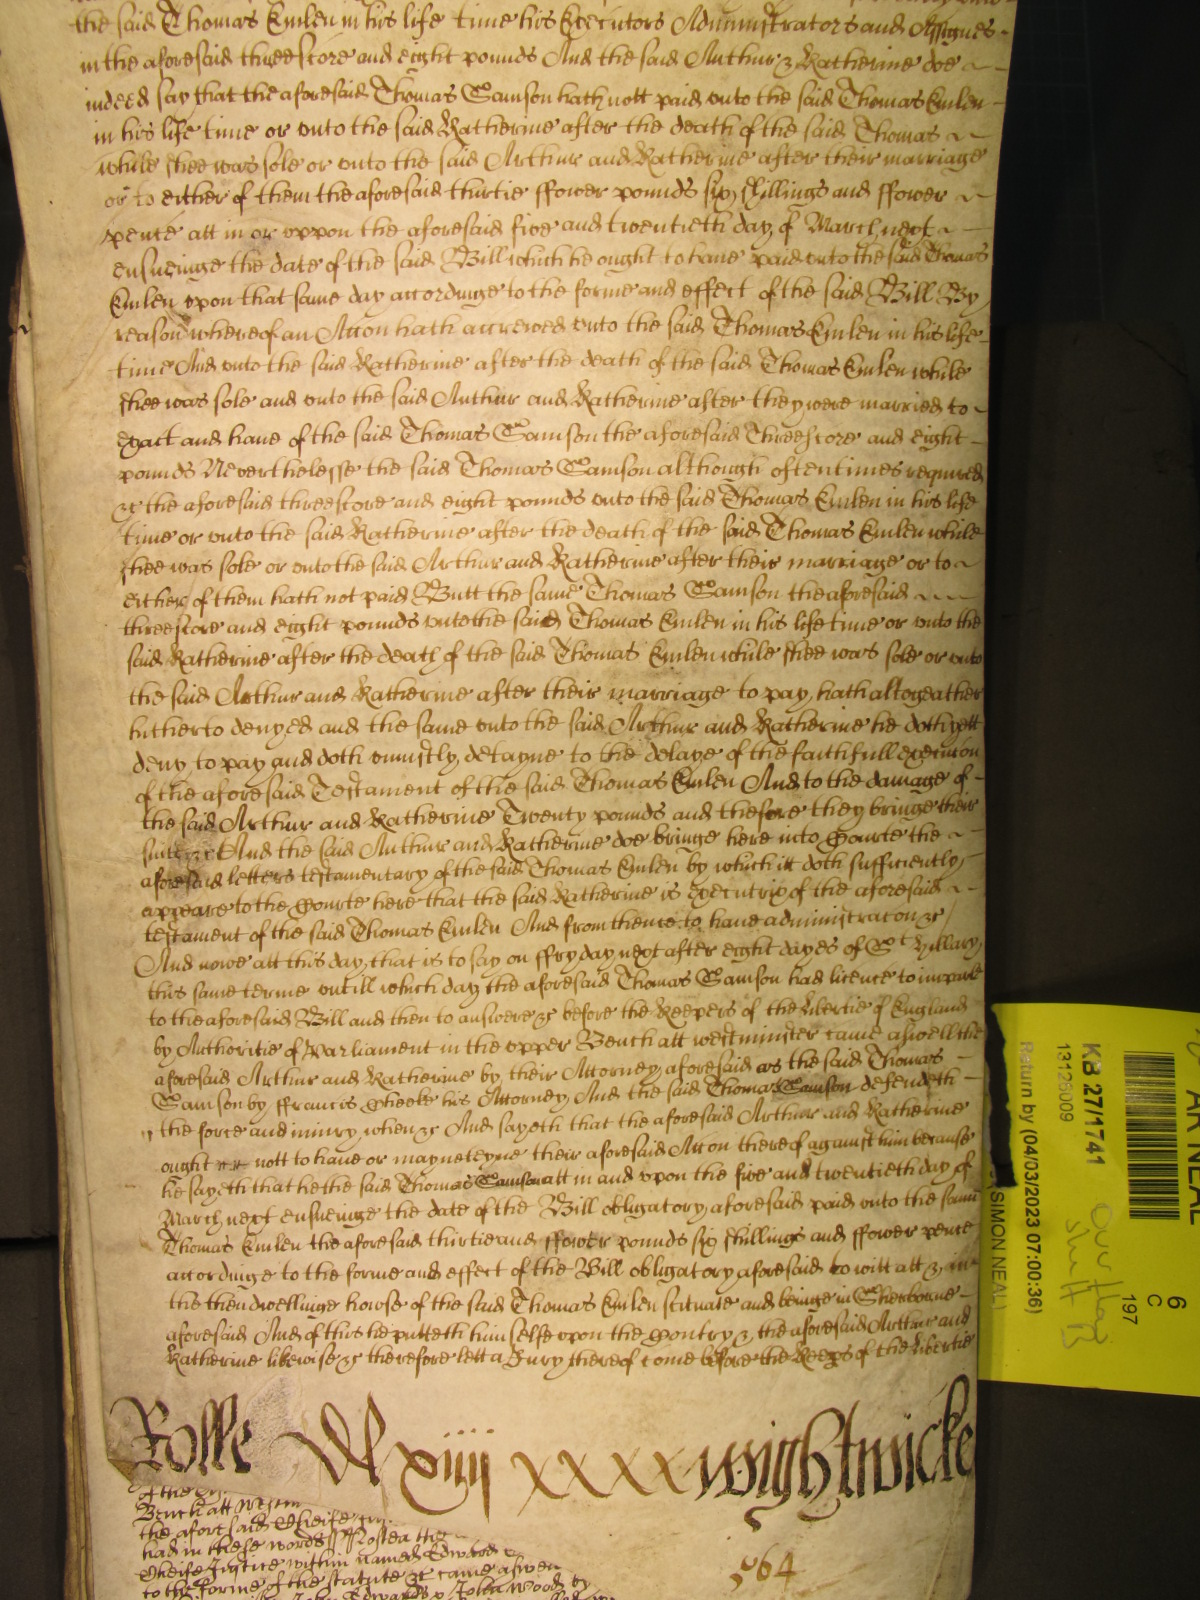 the said Thomas Emlen in his life time his Executors Administrators and Assignes
in the aforesaid threescore and eight pounds And the said Arthur & Katherine doe
indeed say that the aforesaid Thomas Samson hath nott paid unto the said Thomas Emlen
in his life time or unto the said Katherine after the death of the said Thomas
while shee was sole or unto the said Arthur and Katherine after their marriage
or to either of them the aforesaid thirtie ffower pounds six shillings and ffower
pence att in or uppon the aforesaid five and twentieth day of March next
ensueinge the date of the said Bill which he ought to have paid unto the said Thomas
Emlen upon that same day accordinge to the forme and effect of the said Bill By
reason whereof an Accon hath accrewed unto the said Thomas Emlen in his life
time And unto the said Katherine after the death of the said Thomas Emlen while
shee was sole and unto the said Arthur and Katherine after they were married to
exact and have of the said Thomas Samson the aforesaid Threescore and eight
pounds Neverthelesse the said Thomas Samson although oftentimes required
&c the aforesaid threescore and eight pounds unto the said Thomas Emlen in his life
time or unto the said Katherine after the death of the said Thomas Emlen while
shee was sole or unto the said Arthur and Katherine after their marriage or to
either of them hath not paid Butt the same Thomas Samson the aforesaid
threescore and eight pounds unto the said Thomas Emlen in his life time or unto the
said Katherine after the death of the said Thomas Emlen while shee was sole or unto
the said Arthur and Katherine after their marriage to pay hath altogeather
hitherto denyed and the same unto the said Arthur and Katherine he doth yett
deny to pay and doth uniustly detayne to the delaye of the faithfull execucon
of the aforesaid Testament of the said Thomas Emlen And to the damage of
the said Arthur and Katherine Twenty pounds and therfore they bringe their
suite &c And the said Arthur and Katherine doe bringe here into Courte the
aforesaid letters testamentary of the said Thomas Emlen by which itt doth sufficiently
appeare to the Courte here that the said Katherine is executrix of the aforesaid
testament of the said Thomas Emlen And from thence to have administracon &c
And nowe att this day that is to say on ffryday next after eight dayes of St Hillary
this same terme untill which day the aforesaid Thomas Samson had licence to imparle
to the aforesaid Bill and then to answere &c before the Keepers of the libertie of England
by Authoritie of Parliament in the upper Bench att westminster came aswell the
aforesaid Arthur and Katherine by their Attorney aforesaid as the said Thomas
Samson by ffrancis Cheeke his Attorney And the said Thomas Samson defendeth
the force and iniury when &c And sayeth that the aforesaid Arthur and Katherine
ought nott to have or mayneteyne their aforesaid Accon thereof against him because
he sayeth that he the said Thomas Samson att in and upon the five and twentieth day of
March next ensueinge the date of the Bill obligatory aforesaid paid unto the same
Thomas Emlen the aforesaid thirtie and ffower pounds six shillings and ffower pence
accordinge to the forme and effect of the Bill obligatory aforesaid to witt att & in
the then dwellinge howse of the said Thomas Emlen scituate and beinge in Sherborne
aforesaid And of this he putteth himselfe upon the Contry & the aforesaid Arthur and
Katherine likewise &c therefore lett a Jury thereof come before the Keeps of the libertie
Rolle xiiij xxxx Wightwicke
of the
Bench att westm
the aforesaid Cheife
had in these words ss Postea
Cheife Justice within named Edward
to the forme of the statute &c came aswell
Edwards John Wood by
564
AR NEAL
(SIMON NEAL)
KB 27/1741
13129009
Return by (04/03/2023 07:00:36)
6
C
197